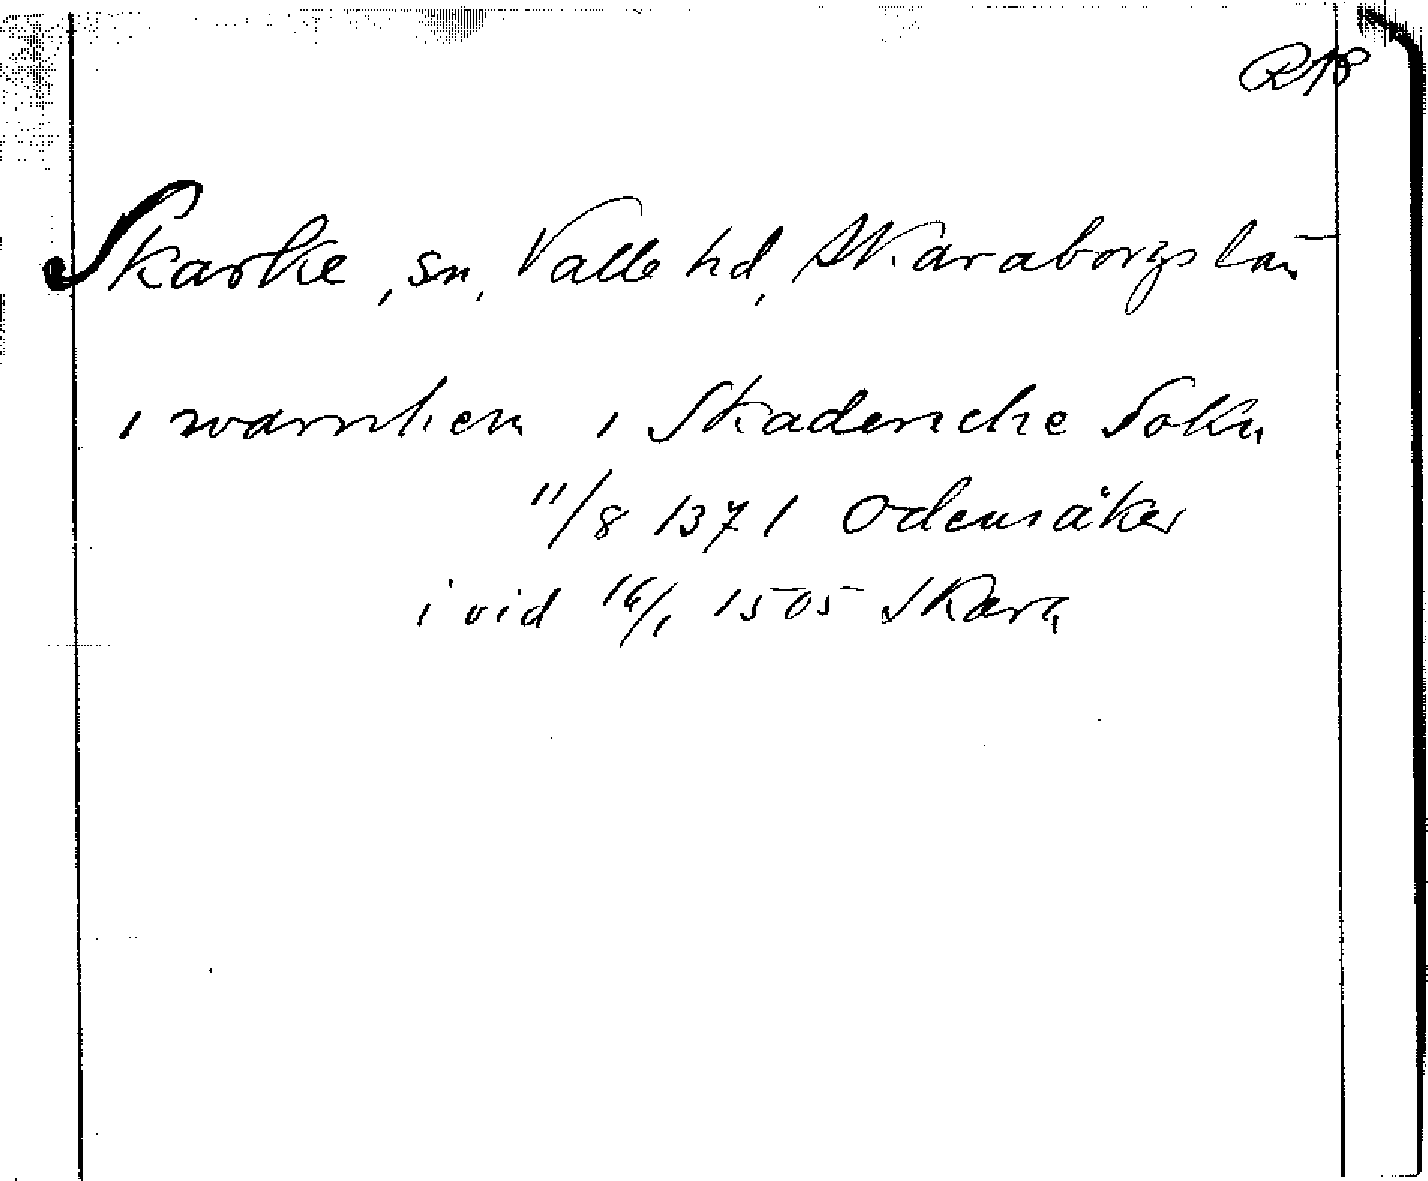 R18
Skarke, sn, Valle hd, Skaraborgs län
i warnhem i Skadenche Sokn
11/8 1371 Odensåker
i vid 16/1 1505 Skara